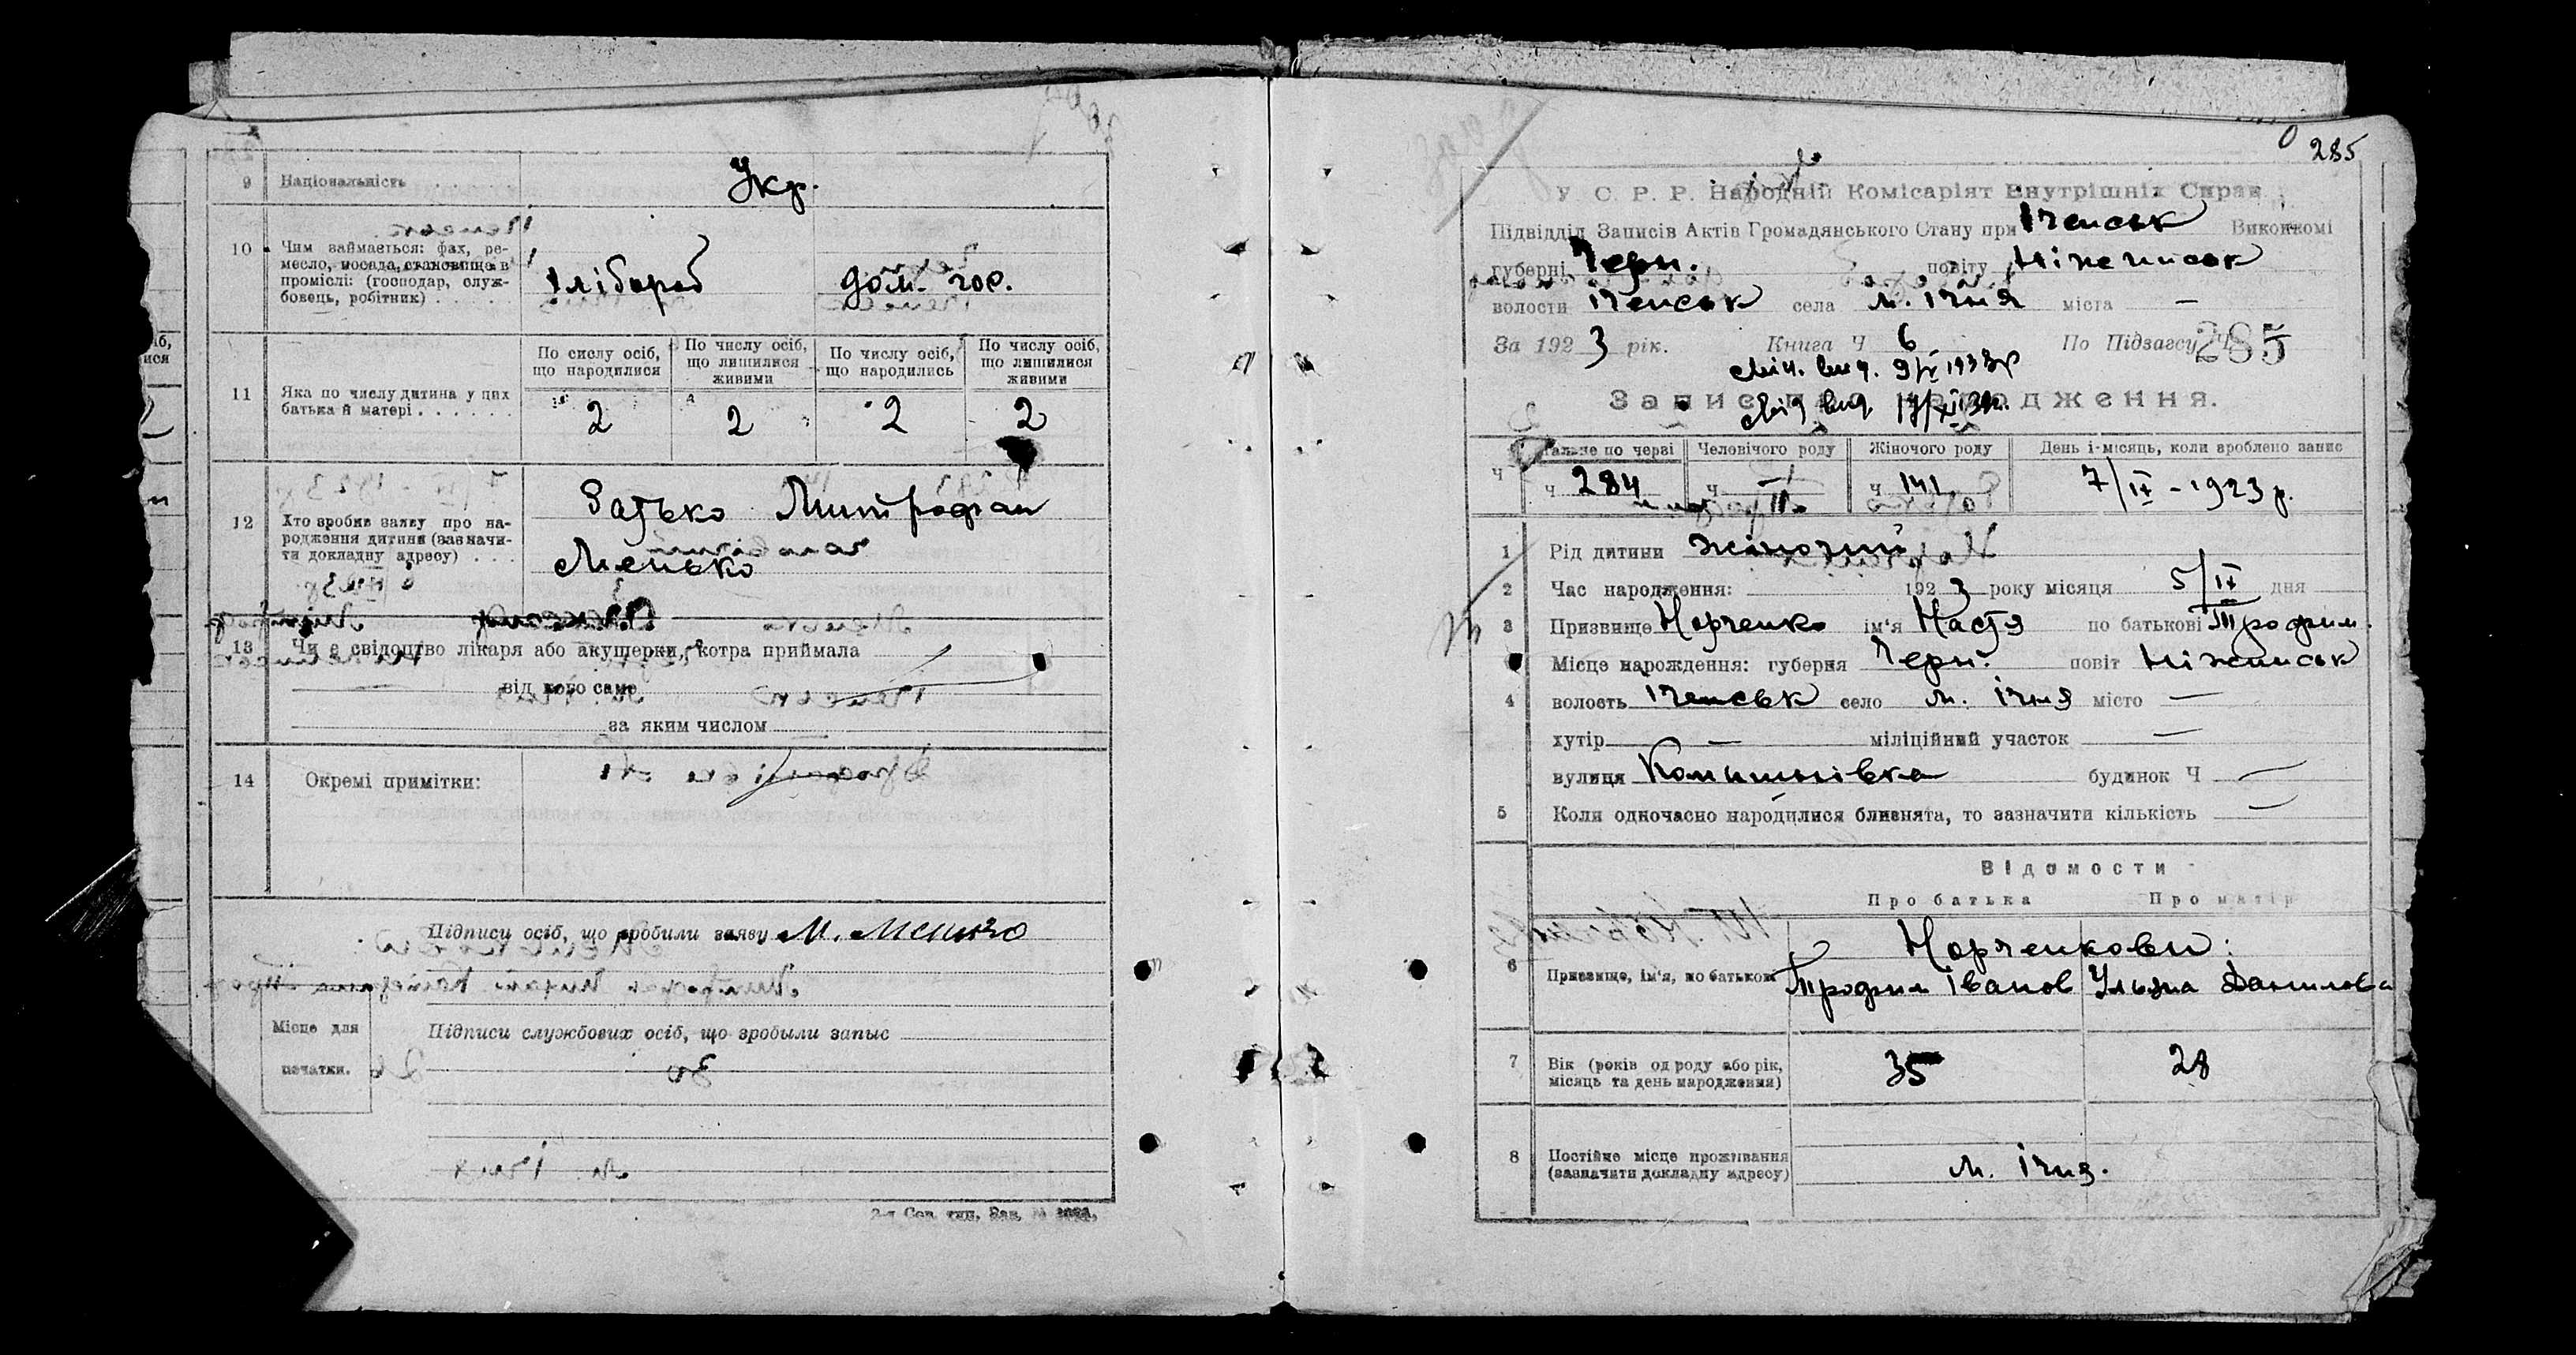 9 Національність Укр.
10 Чим займається: фах, ре-
месло, посада, становище в
проміслі: (господар, служ-
бовець, робітник) Хлібороб дом. гос.
По числу осіб, що народилися
По числу осіб, що лишилися живими
По числу осіб, що народились
По числу осіб, що лишилися живими
11 Яка по числу дитина у цих
батька й матері 2 2 2 2
12 Хто зробив заяву про на-
родження дитини (зазначи-
ти докладну адресу)
Батько Митрофан
Менько
13 Чи є свідоцтво лікаря або акушерки, котра приймала
від кого саме
за яким числом
14 Окремі примітки:
Підписи осіб, що зробили заяву М. Менько
Підписи службових осіб, що зробыли запыс
Місце для
печатки.
285
У. С. Р. Р. Народній Комісаріят Внутрішніх Справ
Підвідділ Записів Актів Громадянського Стану при Іченськ Виконкомі
губерні Черн. повіту Ніженськ
волости Іченськ села м. Ічня міста —
За 1923 рік. Книга Ч 6 По Підзагсу Ч 285
Запис про народження.
Ч
Загальне по черзі Человічого роду Жіночого роду День і місяць, коли зроблено запис
ч 284 ч — ч 141 7/IX - 1923 р.
1 Рід дитини жіночий
2 Час народження: 1923 року місяця 5/IX дня
3 Призвище Норченко ім'я Настя по батькові Трофим.
Місце народження: губерня Черн. повіт Ніжинськ
4 волость Іченськ село м. Ічня місто —
хутір — міліційний участок —
вулиця будинок Ч —
5 Коли одночасно народилися близнята, то зазначити кількість —
Відомости
Про батька Про матір
6 Призвище, ім'я, по батькові
Норченкови:
Трофим Іванов Ульяна Данилова
7 Вік (років од роду або рік,
місяць та день народження) 35 28
8 Постійне місце проживання
(зазначити докладну адресу) м. Ічня.